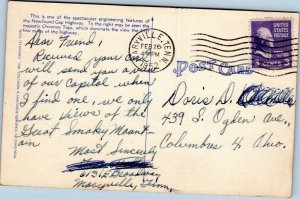 This is one of the spectacular engineering features of
the Newfound Gap Highway. To the right may be seen the
majestic Chimney Tops, which dominate the view for
few miles of the highway.
MARYVILLE, TENN.
FEB 26
1952
UNITED STATES
POSTAGE
3 CENTS 3
POST CARD
Dear Friend,
Received your card
will send you a view
of our Capitol when
I find one, we only
have views of the
Great Smoky Mount-
ain
Most Sincerely
61312 Broadway
Maryville, Tenn,
Doris D.
439 S. Ogden Ave.,
Columbus 4 Ohio.